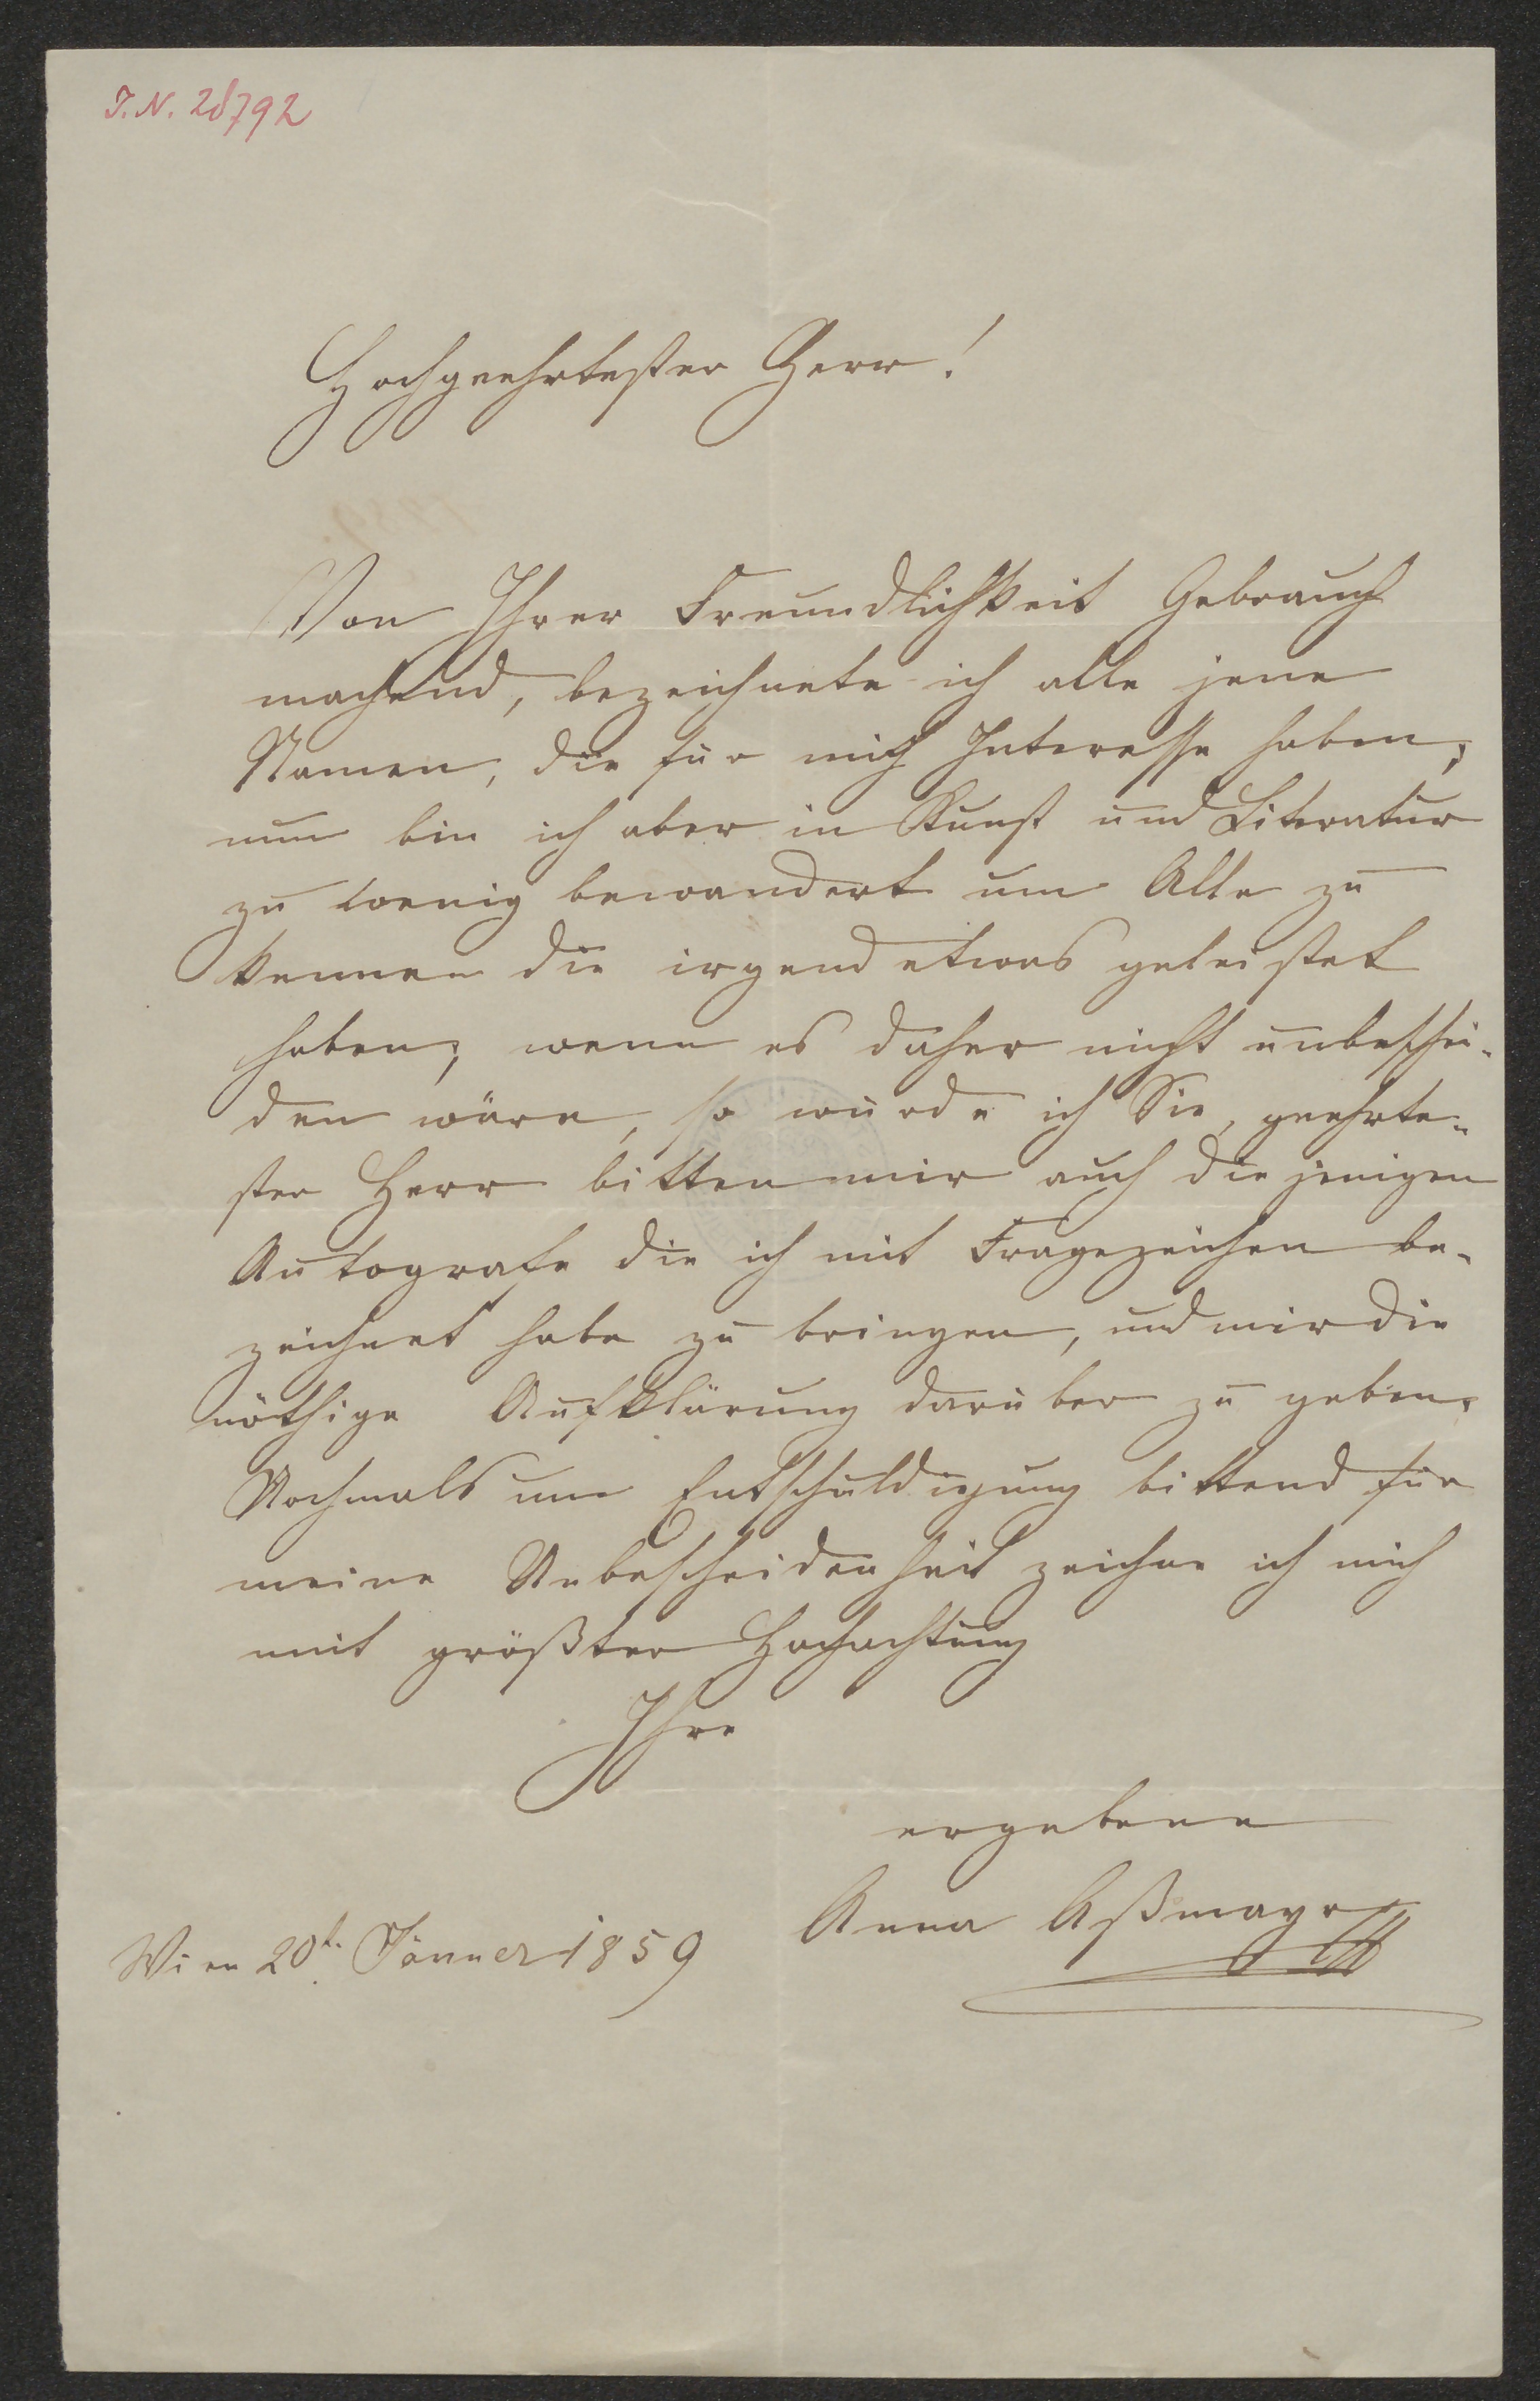 I.N. 28792
Hochgeehrtester Herr!
Von Ihrer Freundlichkeit Gebrauch
machend, bezeichnete ich alle jene
Namen, die für mich Interesse haben,
nun bin ich aber in Kunst und Literatur
zu wenig bewandert um Alle zu
kennen die irgend etwas geleistet
haben; wenn es daher nicht unbeschei-
den wäre, so würde ich Sie, geehrte-
ster Herr bitten mir auch die jenigen
Autografe die ich mit Fragezeichen be-
zeichnet habe zu bringen, und mir die
nöthige Aufklärung darüber zu geben.
Nochmals um Entschuldigung bittend für
meine Unbescheidenheit zeichne ich mich
mit größter Hochachtung
Ihre
ergebene
Anna Aßmayr
Wien 20t. Jänner 1859